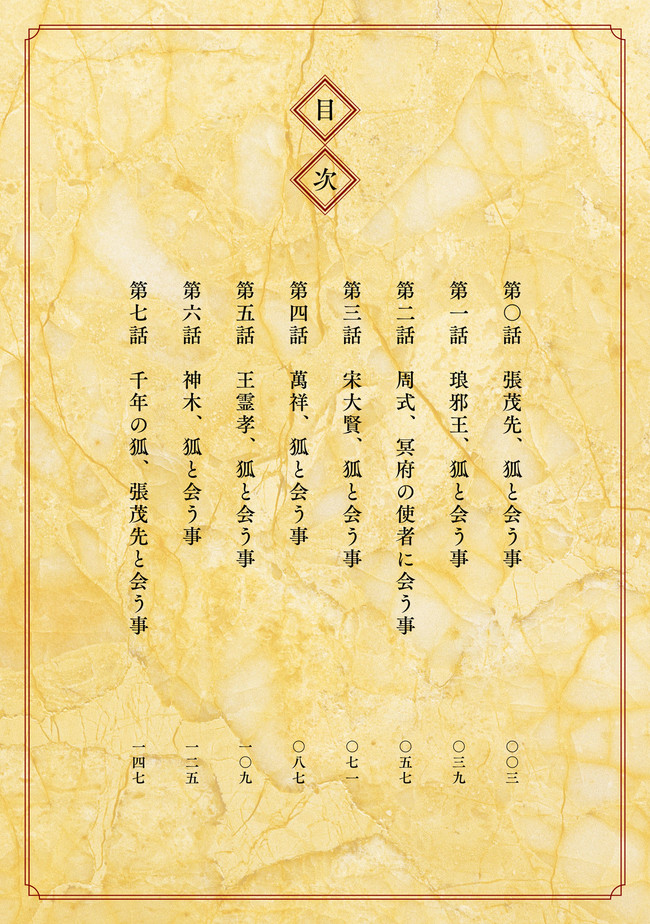 目次
第〇話 張茂先、狐と会う事 〇〇三
第一話 琅邪王、狐と会う事 〇三九
第二話 周式、冥府の使者に会う事 〇五七
第三話 宋大賢、狐と会う事 〇七一
第四話 萬祥、狐と会う事 〇八七
第五話 王霊孝、狐と会う事 一〇九
第六話 神木、狐と会う事 一二五
第七話 千年の狐、張茂先と会う事 一四七